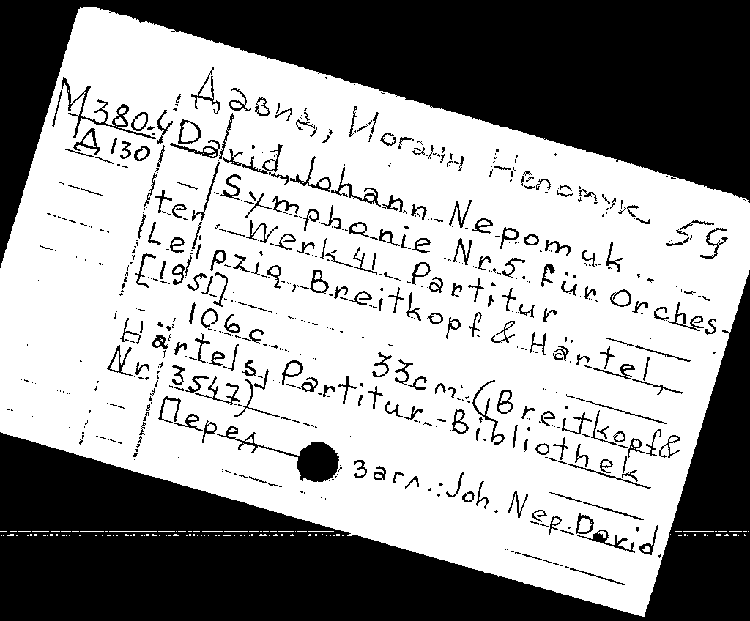 Давид, Иоганн Непомук 59
М380.4
Д 130
David, Johann Nepomuk..
Symphonie Nr.5. für Orches-
ter Werk 41. Partitur
Leipzig, Breitkopf & Härtel,
[1951]
106с. 33cm. („Breitkopf &
Härtels, Partitur-Bibliothek
Nr 3547)
Перед загл.: Joh. Nep. David.